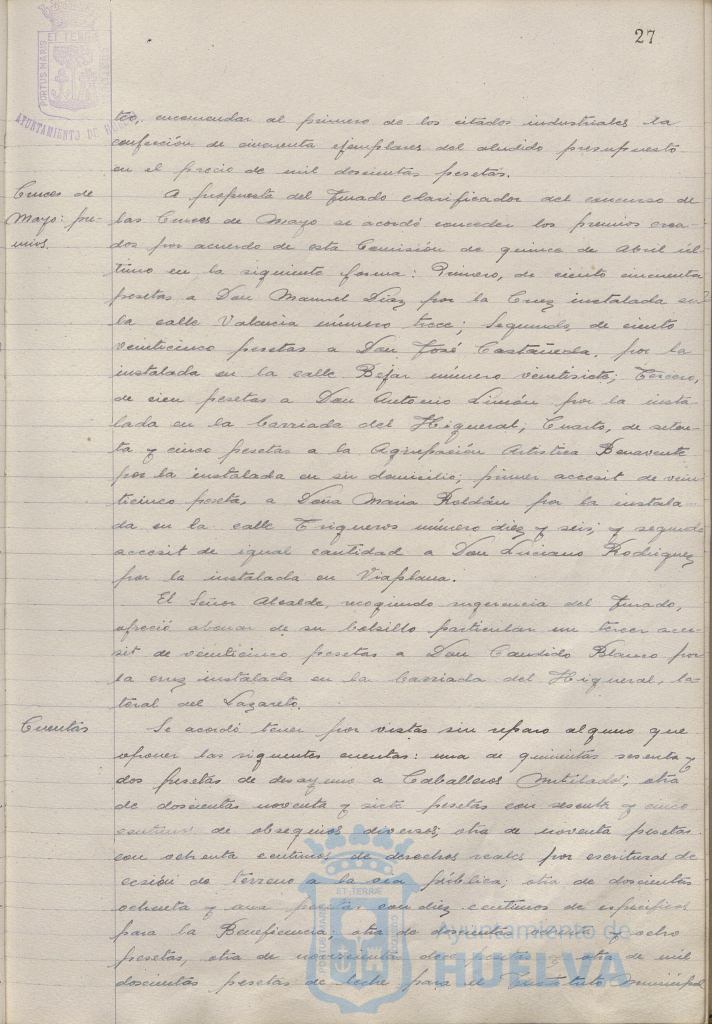 27
PORTUS MARIS ET TERRÆ
AYUNTAMIENTO DE
teo, encomendar al primero de los citados industriales la
confección de cincuenta ejemplares del aludido presupuesto
en el precio de mil doscientas pesetas.
Cruces de Mayo: premios.
A propuesta del Jurado clarificador del concurso de
las Cruces de Mayo se acordó conceder los premios crea-
dos por acuerdo de esta Comisión de quince de Abril úl-
timo en la siguiente forma: Primero, de ciento cincuenta
pesetas a Don Manuel Díaz por la Cruz instalada en
la calle Valencia número trece; Segundo, de ciento
veinticinco pesetas a Don José Castañeda, por la
instalada en la calle Bejar número veintisiete; Tercero,
de cien pesetas a Don Antonio Limón por la insta-
lada en la barriada del Higueral; Cuarto, de seten-
ta y cinco pesetas a la Agrupación Artistica Benavente
por la instalada en su domicilio; primer accesit de vein
ticinco peseta, a Doña Maria Roldán por la instala-
da en la calle Trigueros número diez y seis, y segundo
accesit de igual cantidad a Don Luciano Rodriguez
por la instalada en Viaplana.
El Señor Alcalde, recogiendo sugerencia del Jurado,
ofreció abonar de su bolsillo particular un tercer acce-
sit de veinticinco pesetas a Don Candido Blanco por
la cruz instalada en la barriada del Higueral, la-
teral del Lazareto.
Cuentas
Se acordó tener por vistas sin reparo alguno que
oponer las siguientes cuentas: una de quinientas sesenta y
dos pesetas de desayuno a Caballeros Mutilados; otra
de doscientas noventa y siete pesetas con sesenta y cinco
centimos de obsequios diversos; otra de noventa pesetas
con ochenta centimos de derechos reales por escrituras de
cesión de terreno a la via pública; otra de doscientas
ochenta y una pesetas con diez centimos de especificos
para la Beneficencia; otra de doscientas y ocho
pesetas, otra de novecientas otra de mil
doscientas pesetas de leche para el Instituto Municipal
Ayuntamiento de
HUELVA